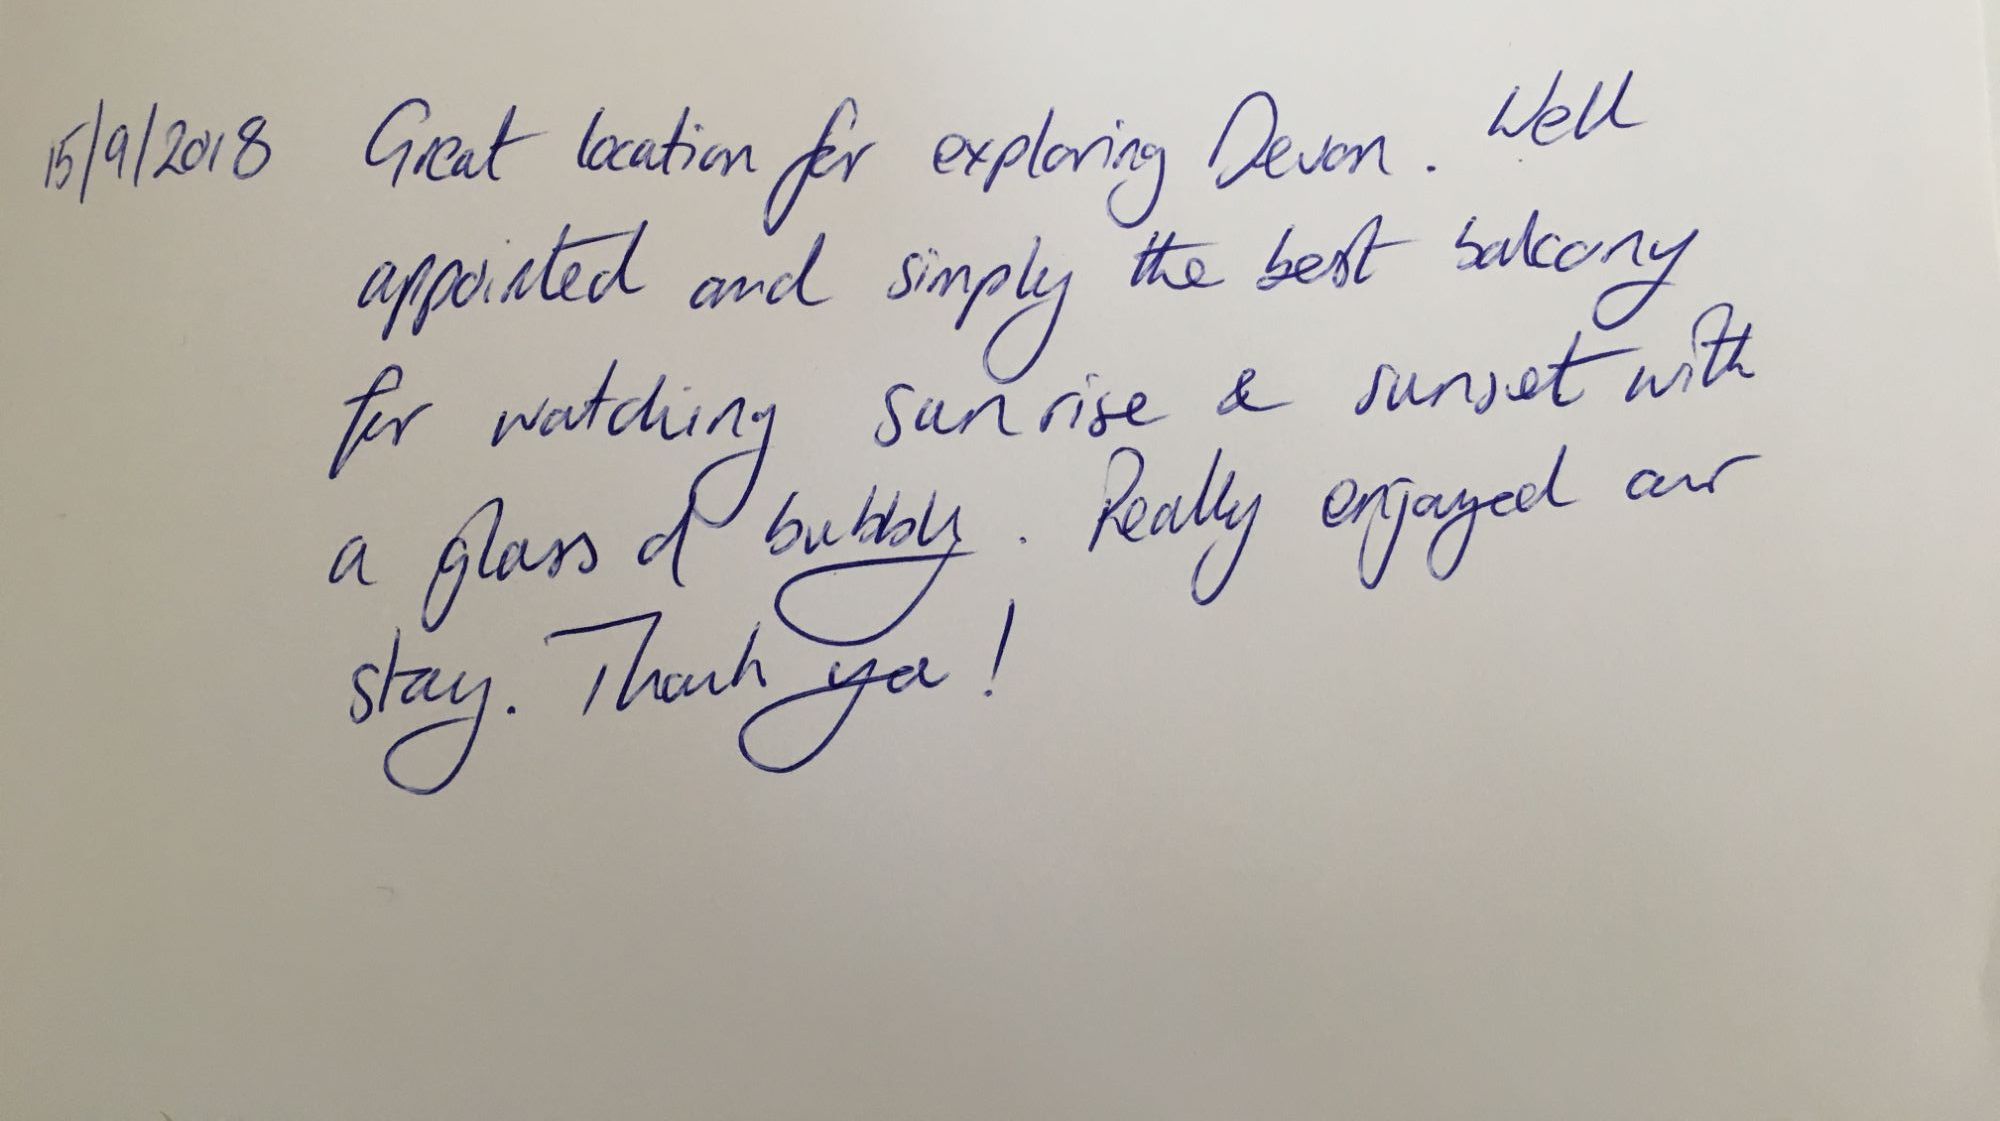 15/9/2018 Great location for exploring Devon. Well
appointed and simply the best balcony
for watching sunrise & sunset with
a glass of bubbly. Really enjoyed our
stay. Thank you!